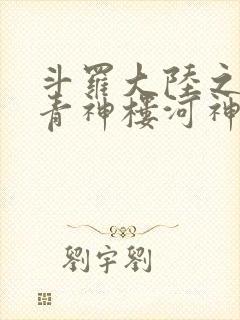 斗羅大陸之
青神樓河神
劉宇劉